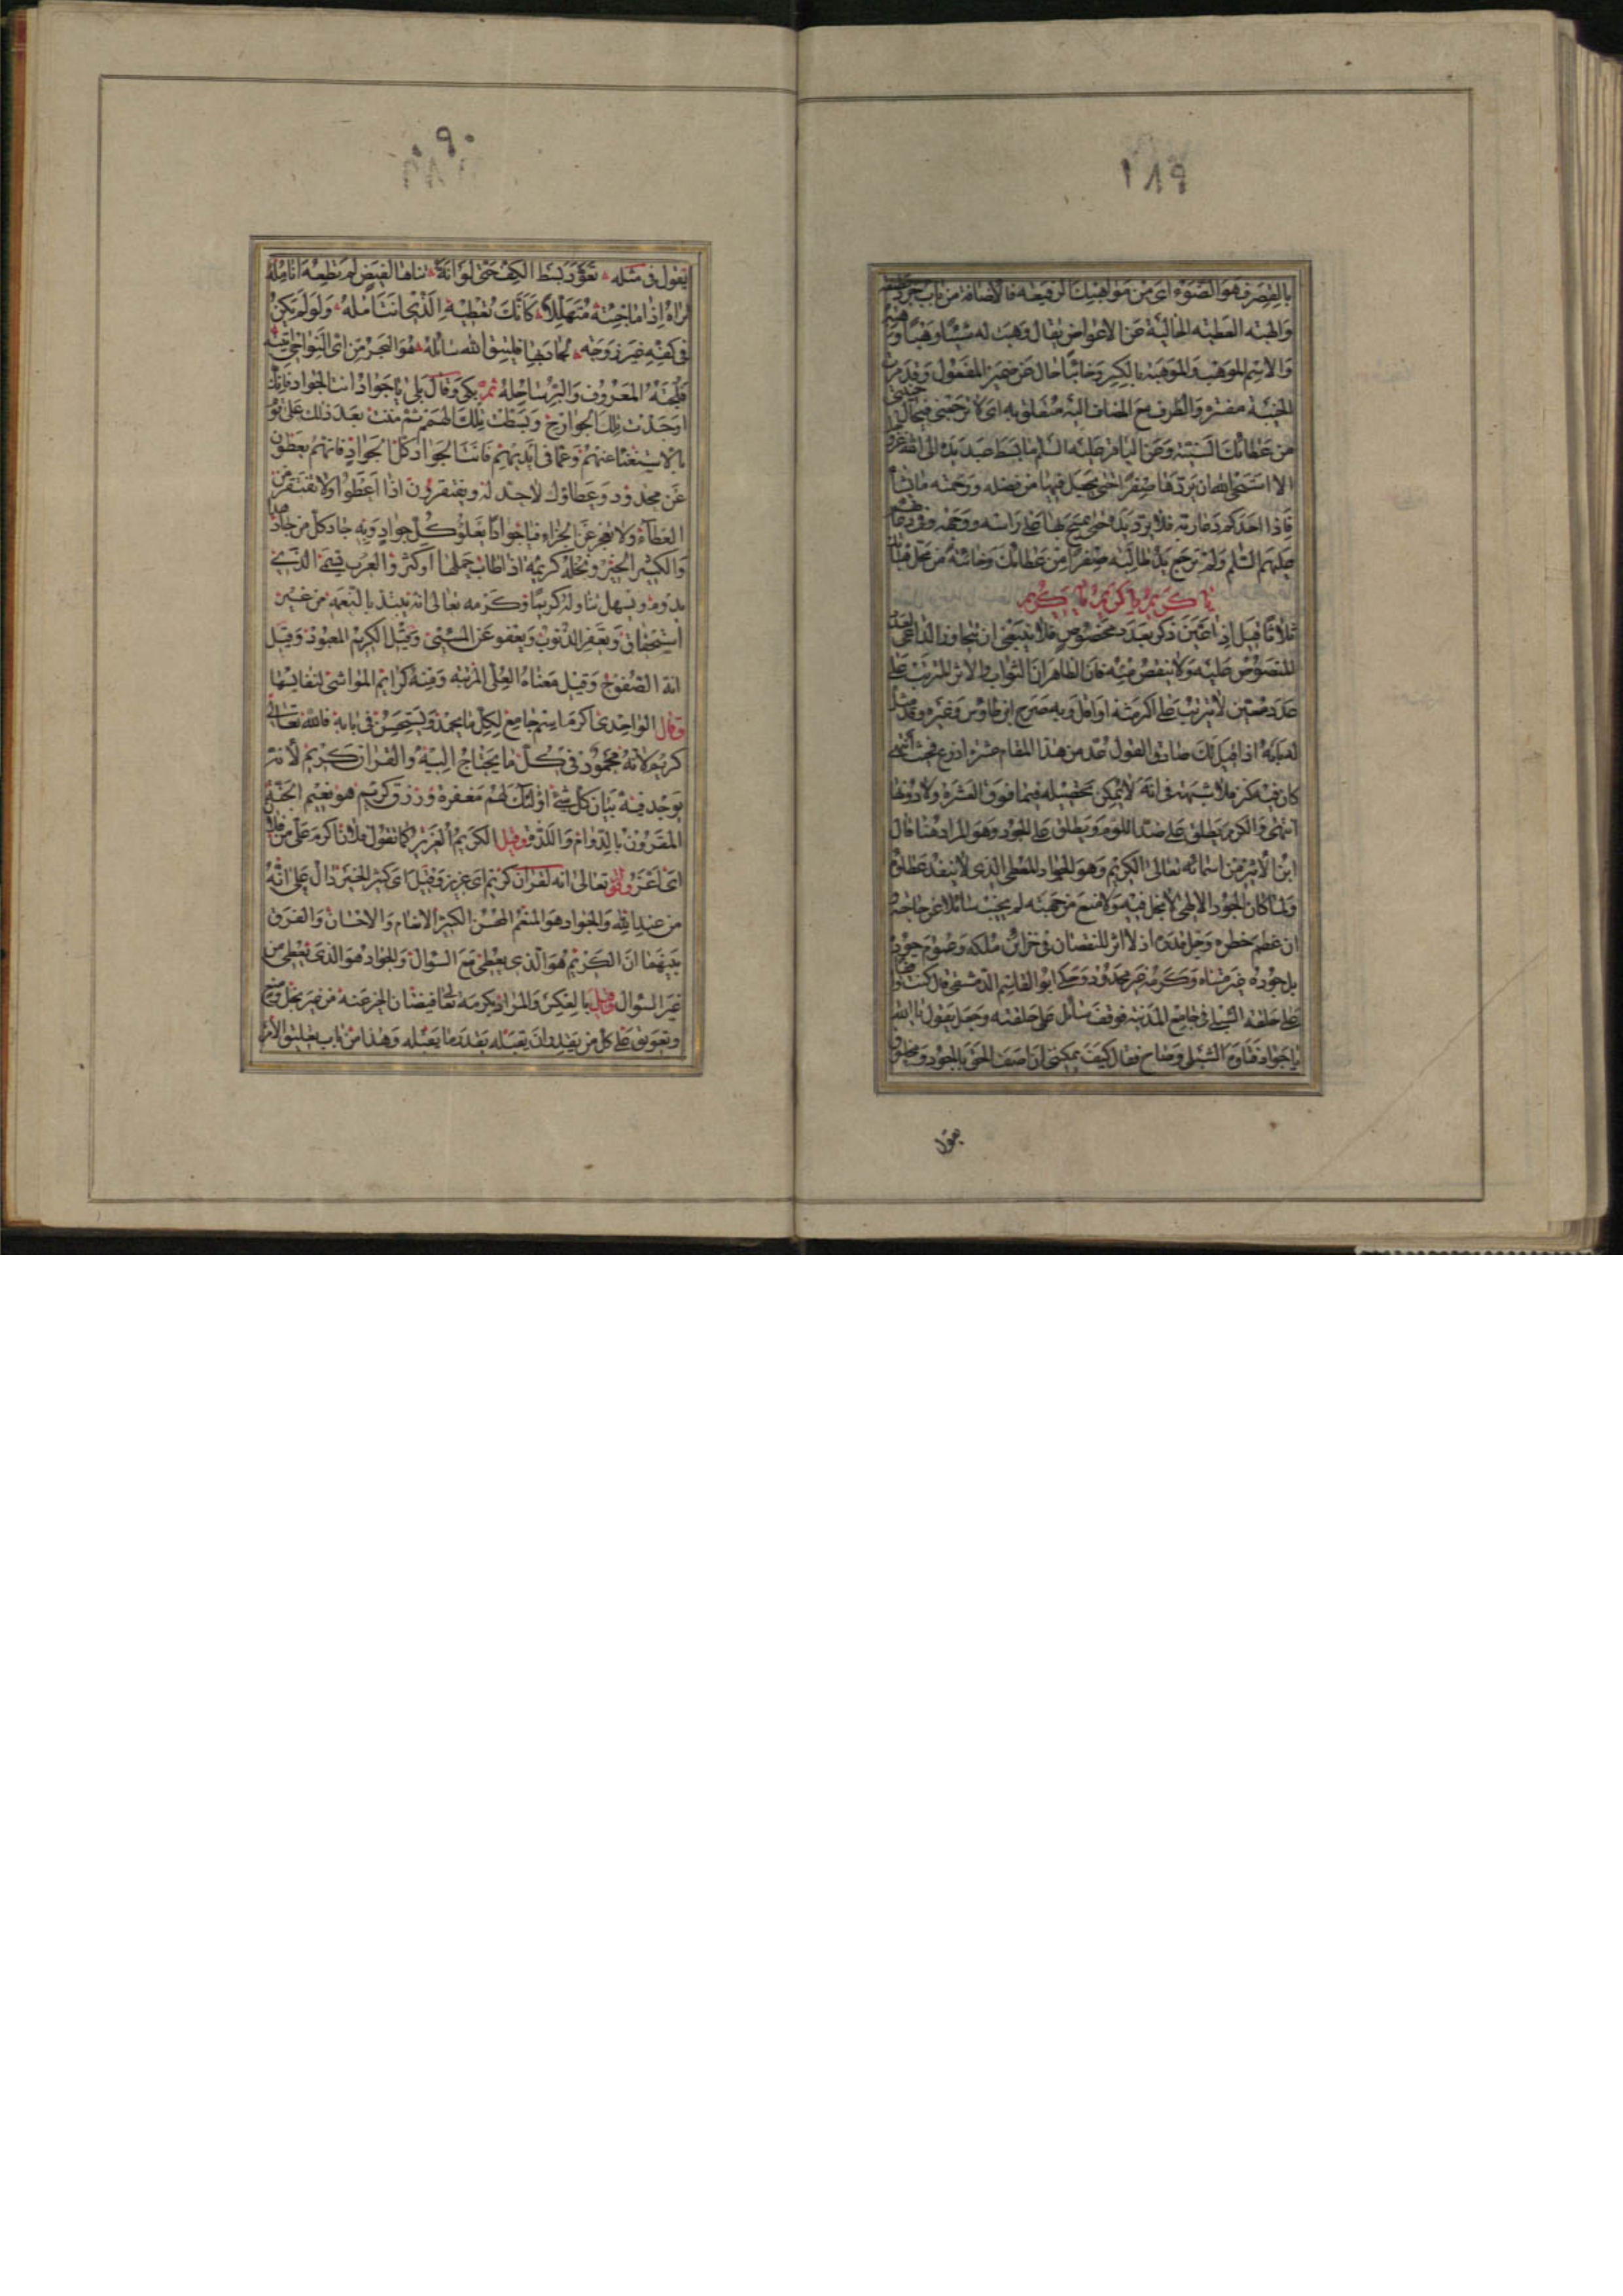 ١٨٩
بالقصر وهو الضوء اى من مواهبك الرفيعة فالاضافة من باب جرد
والهبة العطية الخالية عن الاعواض يقال وهبت له شيئا وهبا
والاسم الموهب والموهبة بالكسر وخائبا حال عن ضمير المفعول وقد مر
الخيبة مفسرة والظرف مع المضاف اليه متعلق به اى لا ترجعنى
من عطائك السنية وعن الباقر عليه السلم ما بسط عبد يده الى الله
الا استحى الله ان يردها صفرا حتى يجعل فيها من فضله ورحمته ما يشاء
فاذا احدكم دعا ربه فلا يرد يده حتى يمسح بها على راسه ووجهه
عليهم السلم ولم ترجع يد طالبة صفرا من عطائك وخائبة من
يا كريم يا كريم يا كريم
ثلاثا قيل اذا عين ذكر بعدد مخصوص فلا ينبغى ان يتجاوز الداعى
المنصوص عليه ولا ينقص منه فان الظاهر ان الثواب والاثر المترتب على
عدد معين لا يترتب على اكثر منه او اقل وبه صرح ابن طاوس وغيره
اذا قيل لك صادق القول عد من هذا المقام عشرة اذرع فتحت
كان فيه كنز فلا شبهة فى انه لا يمكن تحصيله فيما فوق العشرة ولا دونها
انتهى والكرم يطلق على ضد اللوم ويطلق على الجود وهو المراد هنا قال
ابن الاثير من اسمائه تعالى الكريم وهو الجواد المعطى الذى لا ينفد عطاؤه
ولما كان الجود الالهى لا بخل فيه ولا منع من جهته لم يخب سائلا عن حاجته
ان عظم خطره وجل قدره اذ لا اثر للنقصان فى خزائن ملكه
بل جوده غير متناه وكرمه غير محدود وحكى ابو القاسم الدمشقى قال كنت
على حلقة الشبلى فى جامع المدينة فوقف سائل على حلقته وجعل يقول يا الله
يا جواد فتاوه الشبلى وصاح فقال كيف يمكننى ان اصف الحق بالجود ومخلوق
يقول
٠٩٠
يقول فى مثله تعود بسط الكف حتى لو انه ثناها لقبض لم تطعه انامله
تراه اذا ما جئته متهللا كانك تعطيه الذى انت آمله ولو لم يكن
فى كفه غير روحه لجاد بها فليتق الله سائله هو البحر من اى النواحى اتيته
فلجته المعروف والبر ساحله ثم بكى وقال بلى يا جواد انت الجواد فانك
اوجدت تلك الجوارح وبسطت تلك الهمم ثم مننت بعد ذلك على
بالاستغناء عنهم وعما فى ايديهم فانت الجواد كل الجواد فانهم يعطون
عن محدود وعطاؤك لا حد له ويفتقرون اذا اعطوا ولا تفتقر من
العطاء ولا تعجز عن الجزاء فيا جوادا يعلو كل جواد وبه جاد كل من جاد
والكثير الخير ونخلة كريمة اذا طاب حملها او كثر والعرب تسمى الذى
يدوم ويسهل تناوله كريما وكرمه تعالى انه يبتدى بالنعمة من غير
استحقاق ويغفر الذنوب ويعفو عن المسيئ وقيل الكريم المعبود وقيل
انه الصفوح وقيل معناه العلى المرتبة ومنه كرايم المواشى لنفائسها
وقال الواحدى اكرم اسم جامع لكل ما يحمد ويستحسن فى بابه فالله تعالى
كريم لانه محمود فى كل ما يحتاج اليه والقران كريم لانه
يوجد فيه بيان كل شئ اولئك لهم مغفرة ورزق كريم هو نعيم الجنة
المقرون بالدوام واللذة وقيل الكريم العزيز كما تقول فلان اكرم على من فلان
اى اعز وقوله تعالى انه لقران كريم اى عزيز وقيل اى كثير الخير دال على انه
من عند الله والجواد هو المنعم المحسن الكثير الانعام والاحسان والفرق
بينهما ان الكريم هو الذى يعطى مع السوال والجواد هو الذى يعطى من
غير السوال وقيل بالعكس والمراد بكرمه تعالى فيضان الخير عنه من غير بخل ومنع
وتعويق على كل من يقدر ان يقبله بقدر ما يقبله وهذا من باب تعليق الامر